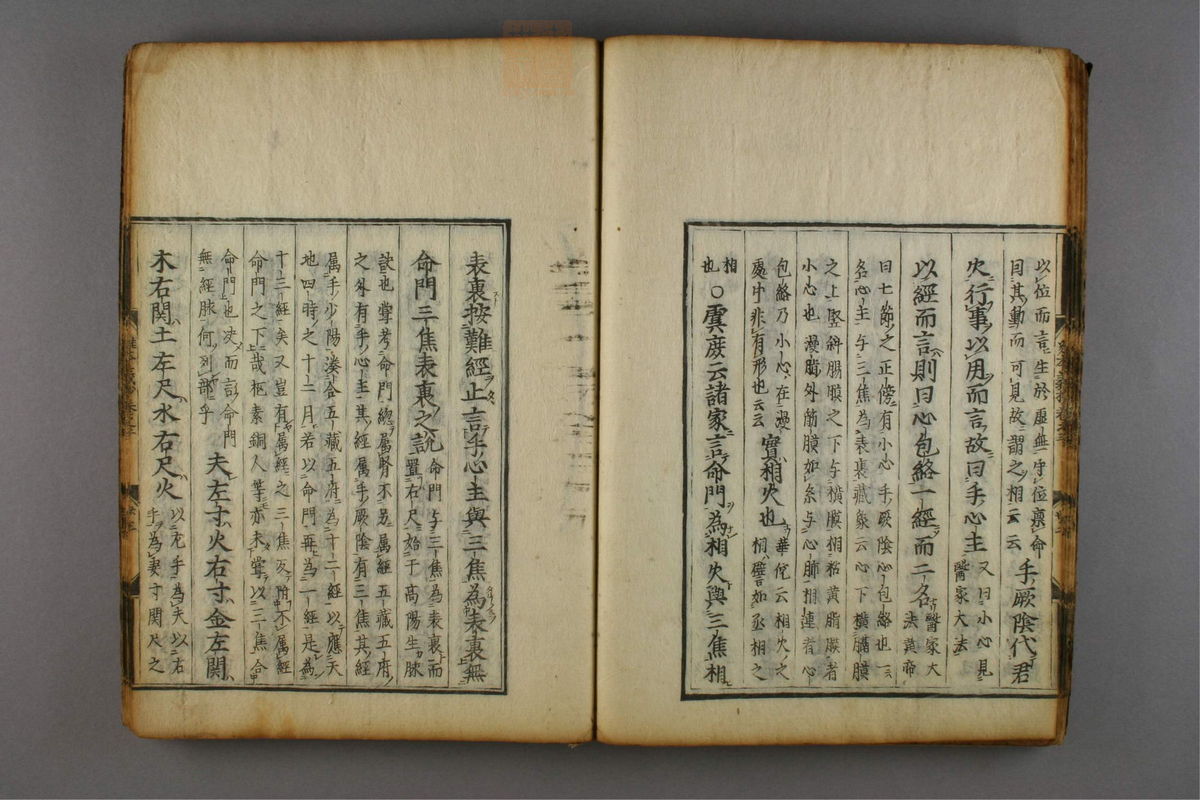 以位而言生於虛無守位稟命
因其動而可見故謂之相云云 手厥陰代君
火行事以用而言故曰手心主 又曰小心見
醫家大法
以經而言則曰心包絡一經而二名 古醫家大
法黃帝
曰七節之正傍有小心手厥陰心包絡也一云
名心主与三焦為表裏藏象云心下橫膈膜
之上竪斜膈膜之下与橫膜相粘黃脂蔽者
小心也漫脂外筋膜如糸与心肺相連者心
包絡乃小心在漫
處中非有形也云云 實相火也 華佗云相火之
相譬如丞相之
相
也 ○虞庶云諸家言命門為相火與三焦相
表裏按難經止言手心主與三焦為表裏無
命門三焦表裏之說 命門与三焦為表裏而
置右尺始于高陽生脉
訣也嘗考命門總属腎不另属經五藏五府
之外有手心主其經属手厥陰有三焦其經
属手少陽湊合五藏五府為十二經以應天
地四時之十二月若以命門再為一經是為
十三經矣又豈有属經之三焦反附不属經
命門之下哉柩素銅人等亦未甞以三焦合
命門也决而言命門
無經脉何列部乎 夫左寸火右寸金左関
木右関土左尺水右尺火 以左手為夫以右
手為妻寸関尺之